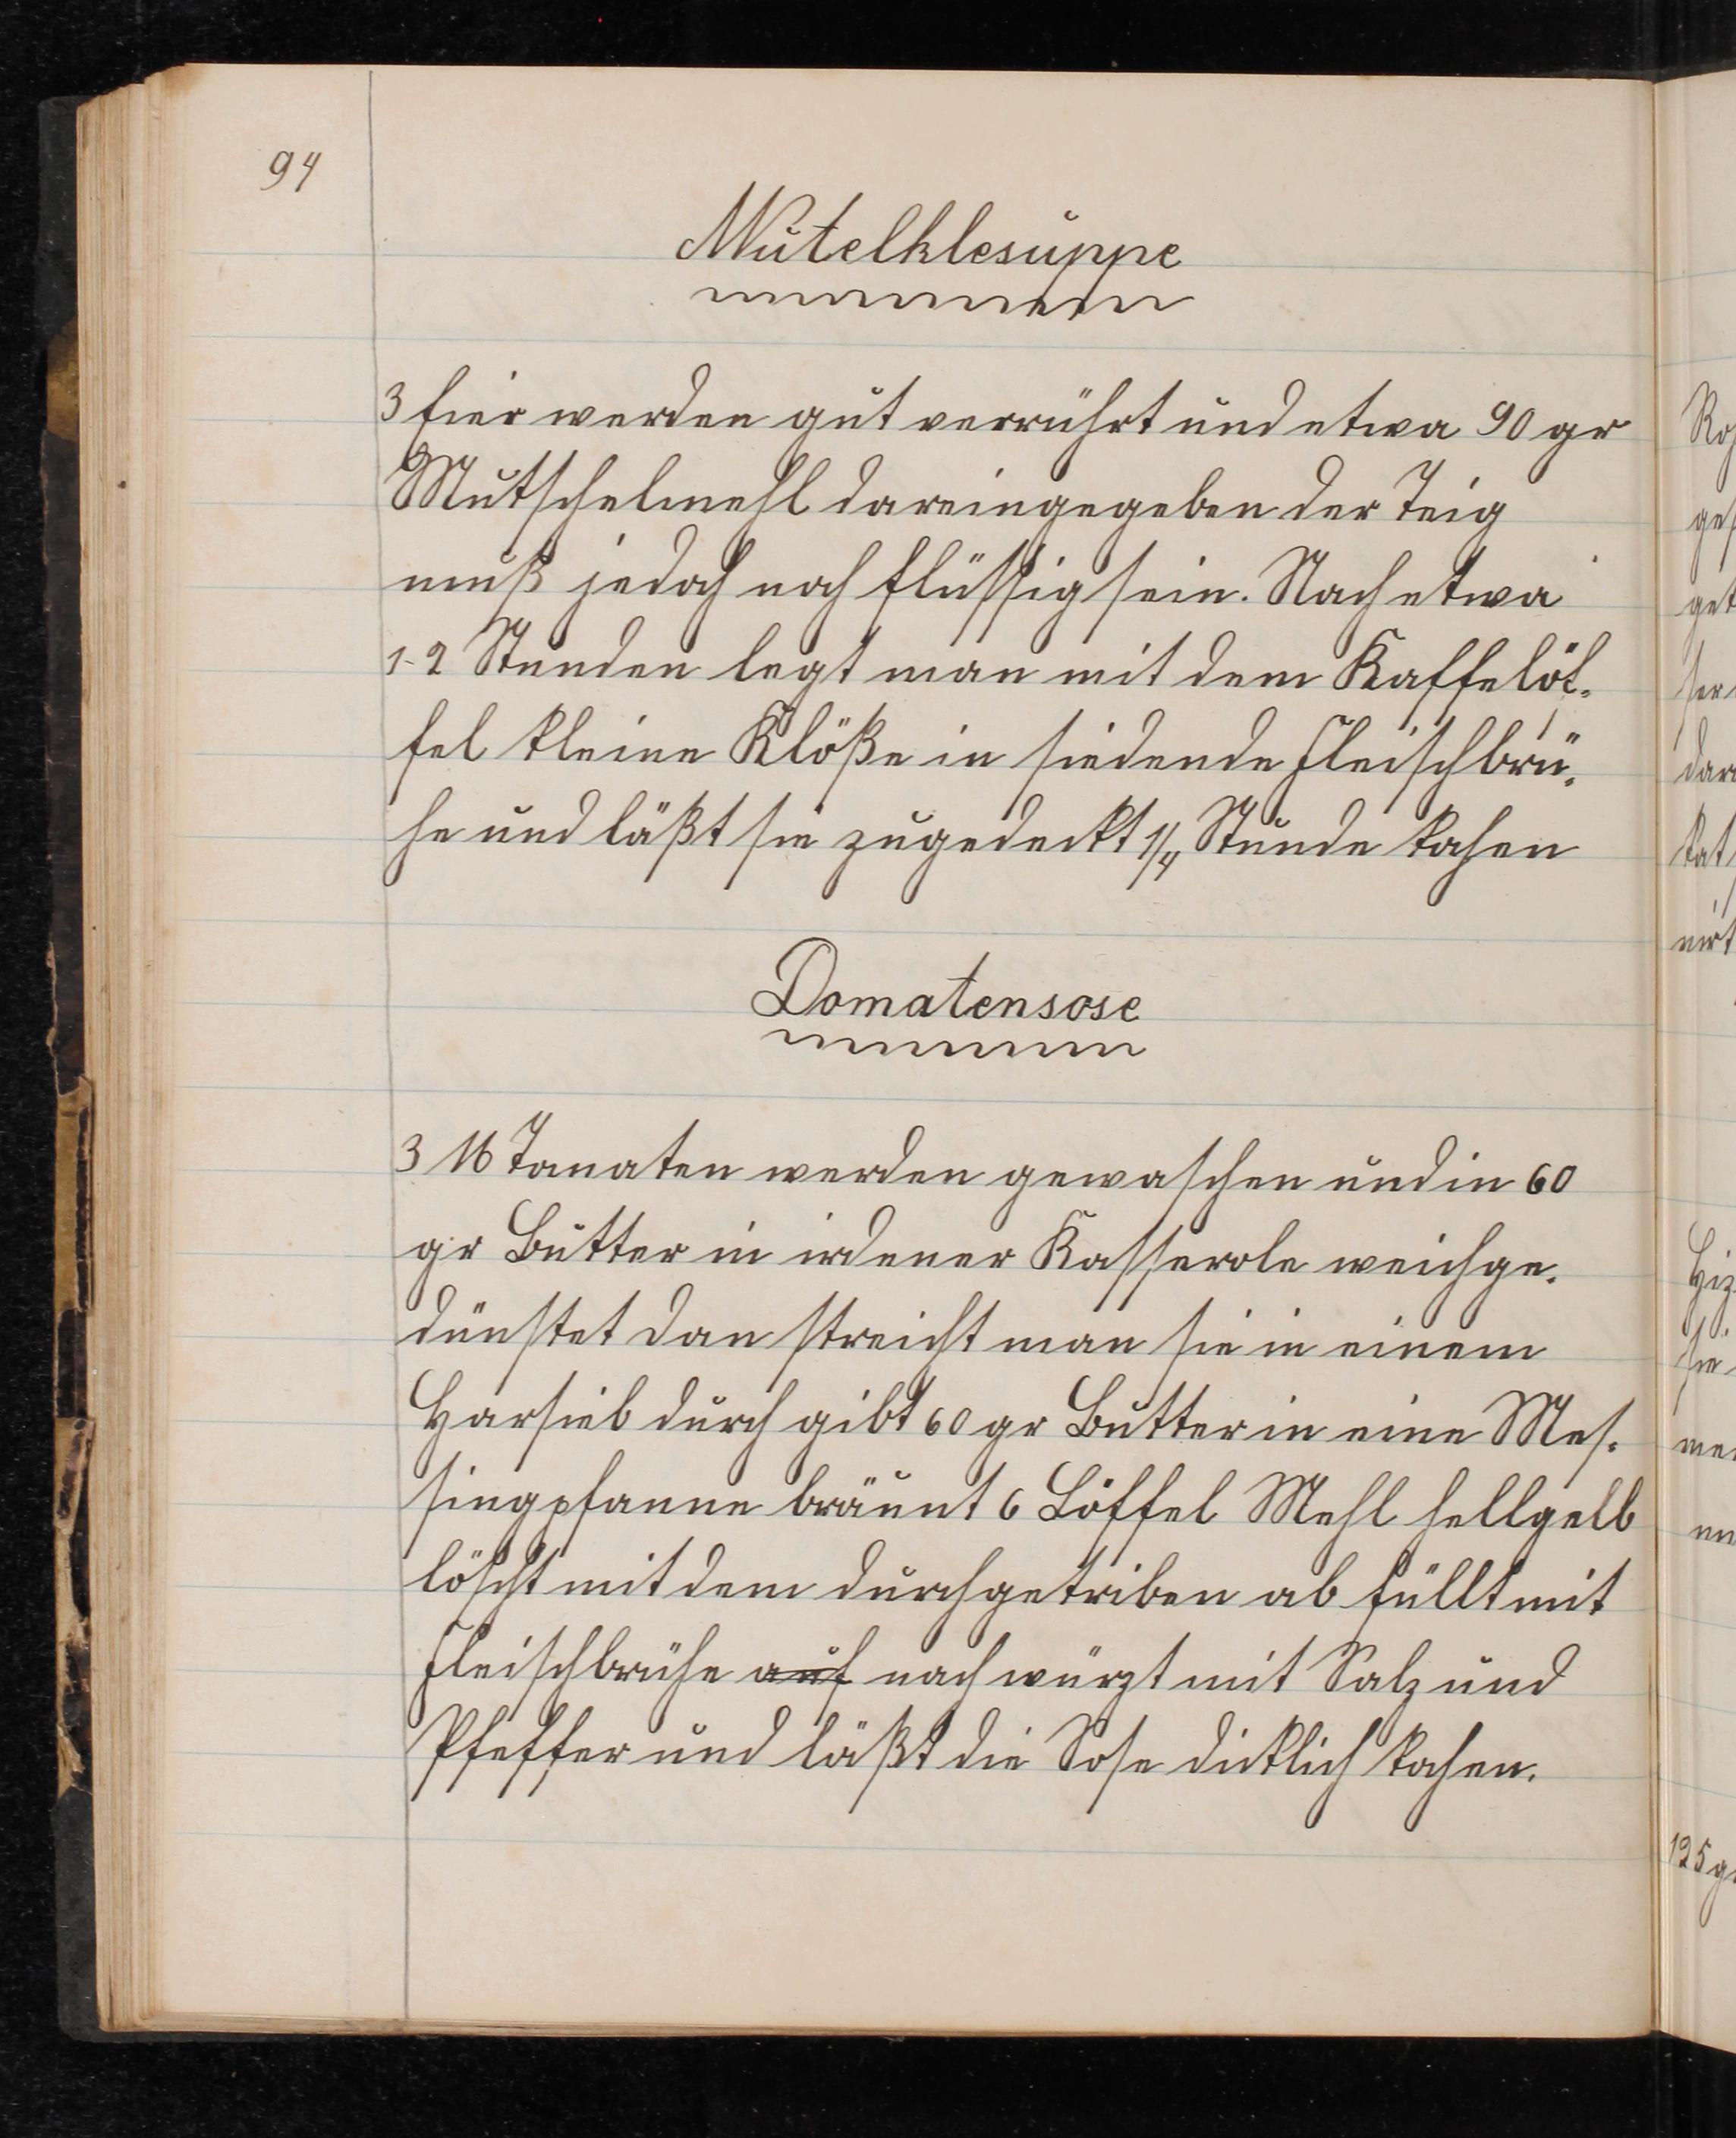 94
Mutelklesuppe
3 Eier werden gut verrührt und etwa 90 gr
Mutschelmehl dareingegeben der Teig
muß jedoch noch flüssig sein. Nach etwa
1-2 Stunden legt man mit dem Kaffelöf-
fel kleine Klöße in siedende Fleischbrü-
he und läßt sie zugedeckt 1/4 Stunde kochen
Domatensose
3 ℔ Tomaten werden gewaschen und in 60
gr Butter in irdener Kasserole weichge-
dünstet dan streicht man sie in einem
Harsieb durch gibt 60 gr Butter in eine Mes-
singpfanne bräunt 6 Löffel Mehl hellgelb
löscht mit dem durchgetriben ab füllt mit
Fleischbrühe auf nach würzt mit Salz und
Pfeffer und läßt die Sose dicklich kochen.
125 g